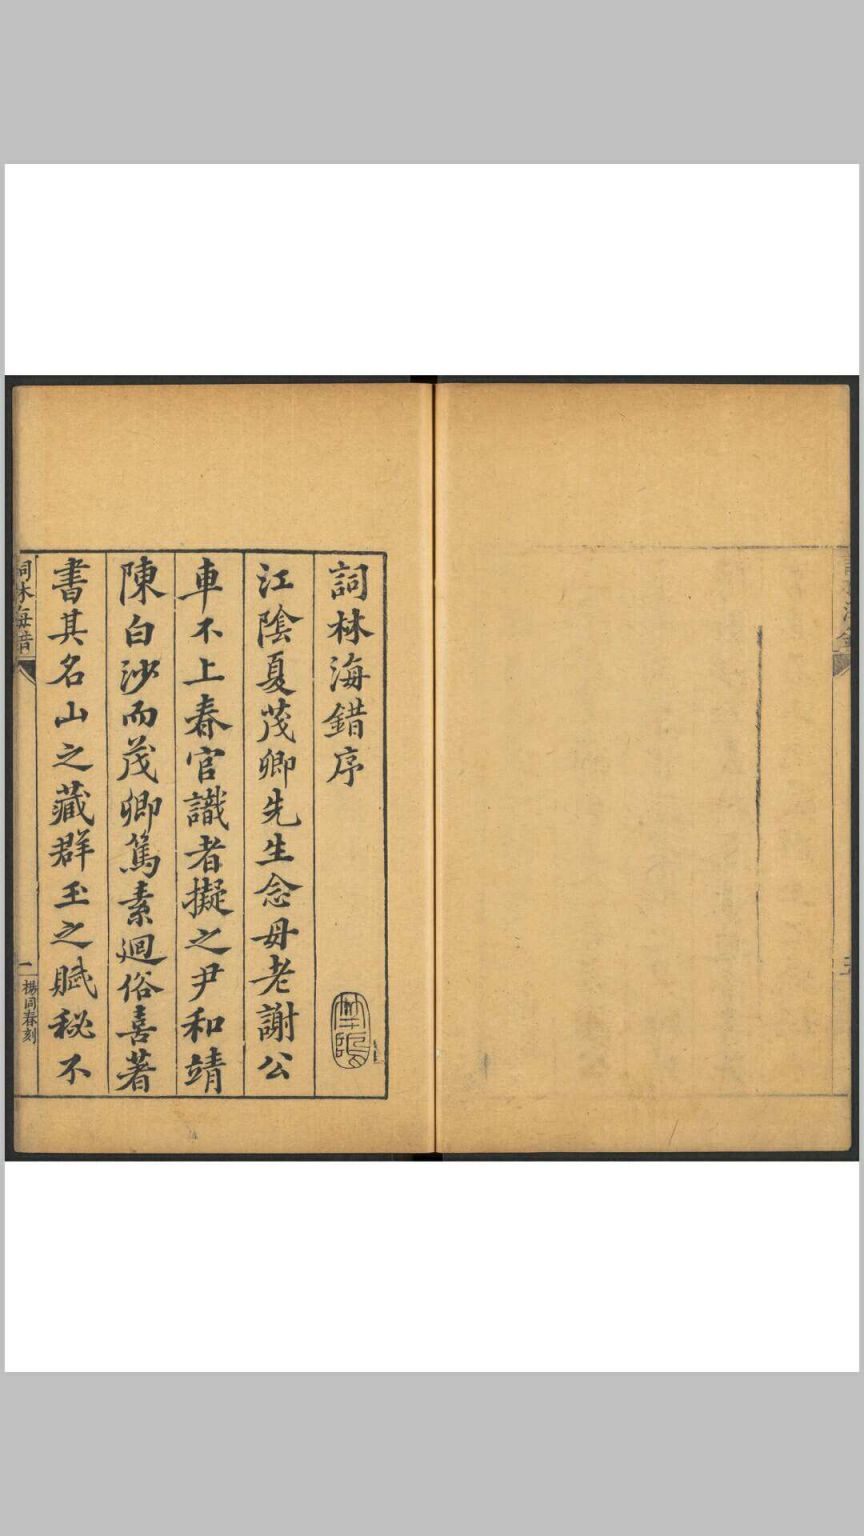 詞林海錯序
江陰夏茂卿先生念母老謝公
車不上春官識者擬之尹和靖
陳白沙而茂卿篤素迴俗喜著
書其名山之藏群玉之賦秘不
詞林海錯
一
楊同春刻